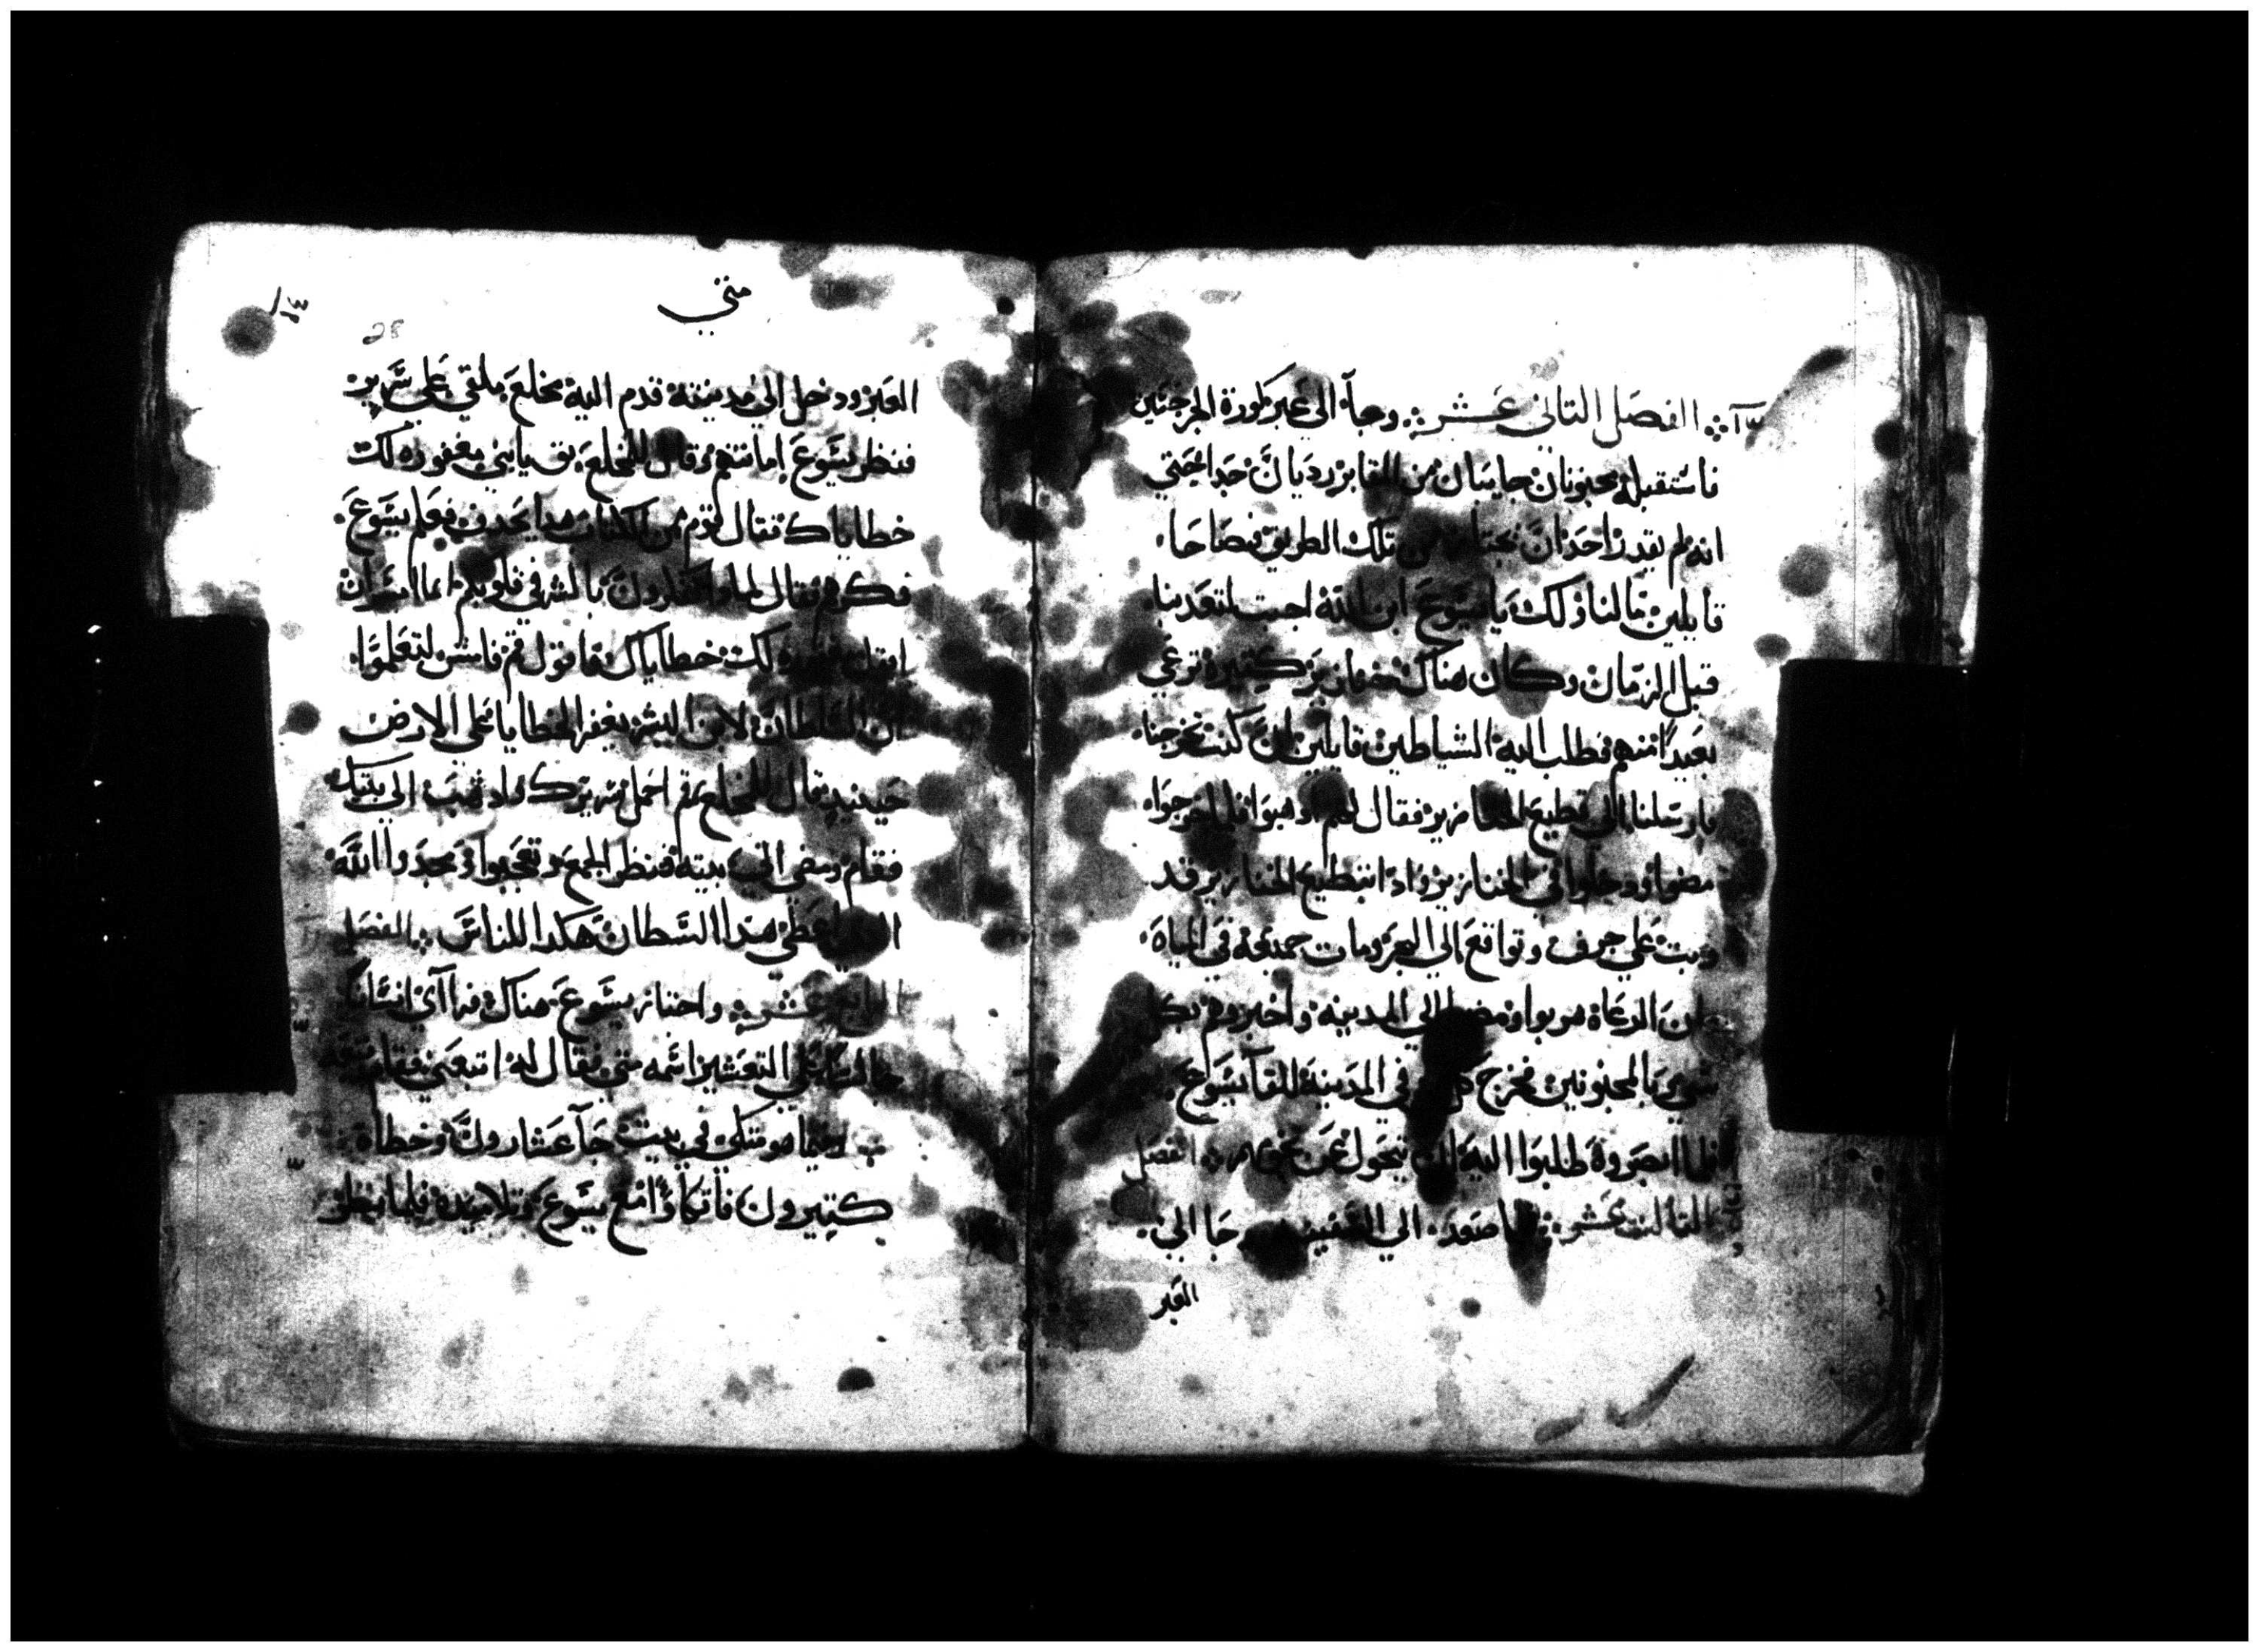 الفصل التاني عشر وجآ الى عبر كورة الجرجتيين
فاستقبله مجنونان جايبان من المقابر رديان جدا حتي
انه لم يقدر احد ان يجتاز من تلك الطريق فصاحا
قايلين مالنا ولك يا يسوع ابن الله اجيت لتعدبنا
قبل الزمان وكان هناك خنازير كتيرة ترعي
بعيدا منهم فطلب اليه الشياطين قايلين ان كنت تخرجنا
فارسلنا الي قطيع الخنازير فقال لهم ادهبوا فلما خرجوا
مضوا ودخلوا في الخنازير وادا بقطيع الخنازير قد
وتب علي جرف وتواقع الي البحر ومات جميعه في المياه
وان الرعاة هربوا ومضوا الي المدينة واخبروهم بكل
شي بالمجنونين فخرج في المدينة للقآ يسوع
فلما ابصروه طلبوا اليه ان يتحول عن تخومهم الفصل
التالت عشر فلما صعد الي السفينه جا الي
العبر
متي
28
العبر ودخل الي مدينته قدم اليه مخلع ملقي علي سرير
فنظر يسوع امانتهم وقال للمخلع تق يابني مغفوره لك
خطاياك فقال قوم من الكتاب هدا يجدف فعلم يسوع
فكرهم فقال لمادا تفكرون بالشر في قلوبكم ايما ايسر ان
اقول مغفوره لك خطاياك او اقول قم فامش لتعلموا
ان السلطان لابن البشر يغفر الخطايا علي الارض
حينيد قال للمخلع قم احمل سريرك وادهب الي بيتك
فقام ومضي الي بيته فنظر الجمع وتعجبوا ومجدوا الله
الدي اعطي هدا السطان هكدا للناس الفصل
الرابع عشر واجتاز يسوع هناك فرآي انسانا
جالسا علي التعشير اسمه متي فقال له اتبعني فقام وتبعه
وفيما هو متكي في بيت جآ عشارون وخطاة
كتيرون فاتكاوا مع يسوع وتلاميده فلما نظر